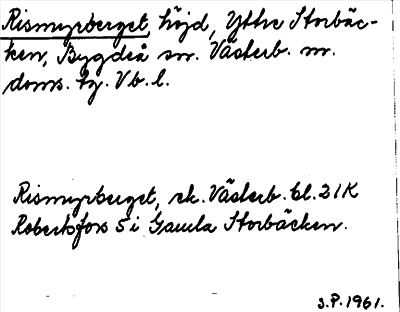 Rismyrberget, höjd, Yttre Storbäc-
ken, Bygdeå sn. Västerb. nr.
doms. tg. Vb. l.
Rismyrberget, ek. Västerb. bl. 21K
Robertsfors 5 i Gamla Storbäcken.
S.P. 1961.